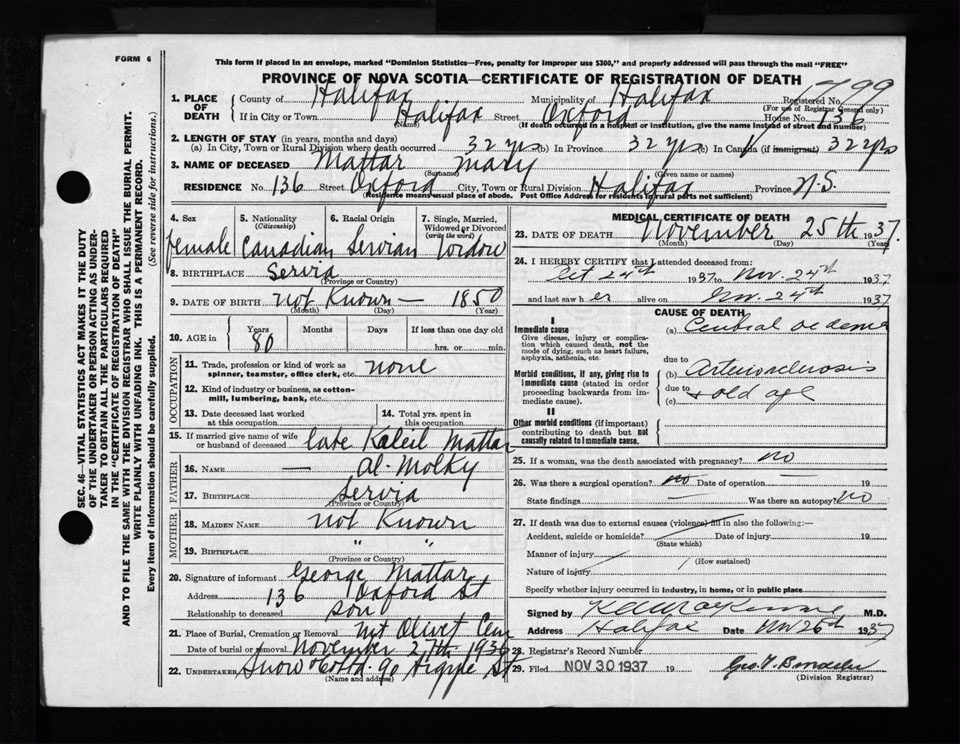 FORM 6
This form if placed in an envelope, marked "Dominion Statistics—Free, penalty for improper use $300," and properly addressed will pass through the mail "FREE"
PROVINCE OF NOVA SCOTIA—CERTIFICATE OF REGISTRATION OF DEATH
1. PLACE OF DEATH County of Halifax Municipality of Halifax Registered No. 1799
(For use of Registrar General only)
If in City or Town Halifax Street Oxford House No. 136
(Name) (If death occurred in a hospital or institution, give the name instead of street and number)
2. LENGTH OF STAY (in years, months and days)
(a) In City, Town or Rural Division where death occurred 32 yrs (b) In Province 32 yrs (c) In Canada (if immigrant) 32 yrs
3. NAME OF DECEASED Mattar Mary
(Surname) (Given name or names)
RESIDENCE No. 136 Street Oxford City, Town or Rural Division Halifax Province N.S.
(Residence means usual place of abode. Post Office Address for residents in rural parts not sufficient)
4. Sex female
5. Nationality (Citizenship) Canadian
6. Racial Origin Servian
7. Single, Married, Widowed or Divorced (write the word) Widow
8. BIRTHPLACE Servia
(Province or Country)
9. DATE OF BIRTH not Known — 1850
(Month) (Day) (Year)
10. AGE in Years 80 Months Days If less than one day old
hrs. or min.
OCCUPATION
11. Trade, profession or kind of work as spinner, teamster, office clerk, etc. none
12. Kind of industry or business, as cotton-mill, lumbering, bank, etc.
13. Date deceased last worked at this occupation
14. Total yrs. spent in this occupation
15. If married give name of wife or husband of deceased late Kaleil Mattar
FATHER
16. NAME — Al-Molky
17. BIRTHPLACE Servia
(Province or Country)
MOTHER
18. MAIDEN NAME not Known
19. BIRTHPLACE " "
(Province or Country)
20. Signature of informant George Mattar
Address 136 Oxford St
Relationship to deceased son
21. Place of Burial, Cremation or Removal Mt Olivet Cem
Date of burial or removal November 27th 1936
22. UNDERTAKER Snow & Co Ltd. 90 Argyle St
(Name and address)
MEDICAL CERTIFICATE OF DEATH
23. DATE OF DEATH November 25th 1937.
(Month) (Day) (Year)
24. I HEREBY CERTIFY that I attended deceased from:
Oct 24th 1937 to Nov. 24th 1937
and last saw her alive on Nov. 24th 1937
CAUSE OF DEATH
I
Immediate cause
Give disease, injury or complication which caused death, not the mode of dying, such as heart failure, asphyxia, asthenia, etc.
(a) Cerebral oedema
due to
Morbid conditions, if any, giving rise to immediate cause (stated in order proceeding backwards from immediate cause).
(b) Arteriosclerosis
due to
(c) & old age
II
Other morbid conditions (if important) contributing to death but not causally related to immediate cause.
25. If a woman, was the death associated with pregnancy? no
26. Was there a surgical operation? no Date of operation — 19
State findings — Was there an autopsy? no
27. If death was due to external causes (violence) fill in also the following:—
Accident, suicide or homicide? Date of injury 19
(State which)
Manner of injury
(How sustained)
Nature of injury
Specify whether injury occurred in industry, in home, or in public place
Signed by M.D.
Address Halifax Date Nov 26th 1937
28. Registrar's Record Number
29. Filed NOV 30 1937 19
(Division Registrar)
SEC. 46—VITAL STATISTICS ACT MAKES IT THE DUTY
OF THE UNDERTAKER OR PERSON ACTING AS UNDERTAKER TO OBTAIN ALL THE PARTICULARS REQUIRED
IN THE "CERTIFICATE OF REGISTRATION OF DEATH"
AND TO FILE THE SAME WITH THE DIVISION REGISTRAR WHO SHALL ISSUE THE BURIAL PERMIT.
WRITE PLAINLY WITH UNFADING INK. THIS IS A PERMANENT RECORD.
Every item of information should be carefully supplied. (See reverse side for instructions.)